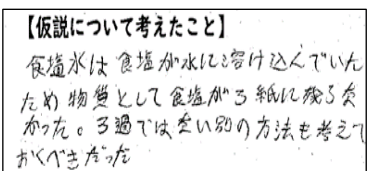 【仮説について考えたこと】
食塩水は食塩が水に溶け込んでいた
ため物質として食塩がろ紙に残らな
かった。ろ過では無い別の方法も考えて
おくべきだった